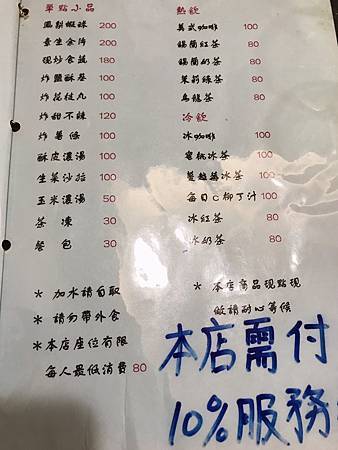 單點小品
鳳梨蝦球 200
養生合掌 200
現炒食蔬 180
炸鹽酥雞 100
炸花枝丸 100
炸甜不辣 120
炸薯條 100
酥皮濃湯 100
生菜沙拉 100
玉米濃湯 50
茶凍 30
餐包 30
＊ 加水請自取
＊ 請勿帶外食
＊ 本店座位有限
每人最低消費 80
熱飲
美式咖啡 100
錫蘭紅茶 80
錫蘭奶茶 80
茉莉綠茶 80
烏龍茶 80
冷飲
冰咖啡 100
蜜桃冰茶 100
蔓越莓冰茶 100
每日C柳丁汁 100
冰紅茶 80
冰奶茶 80
＊ 本店商品現點現
做請耐心等候
本店需付
10%服務